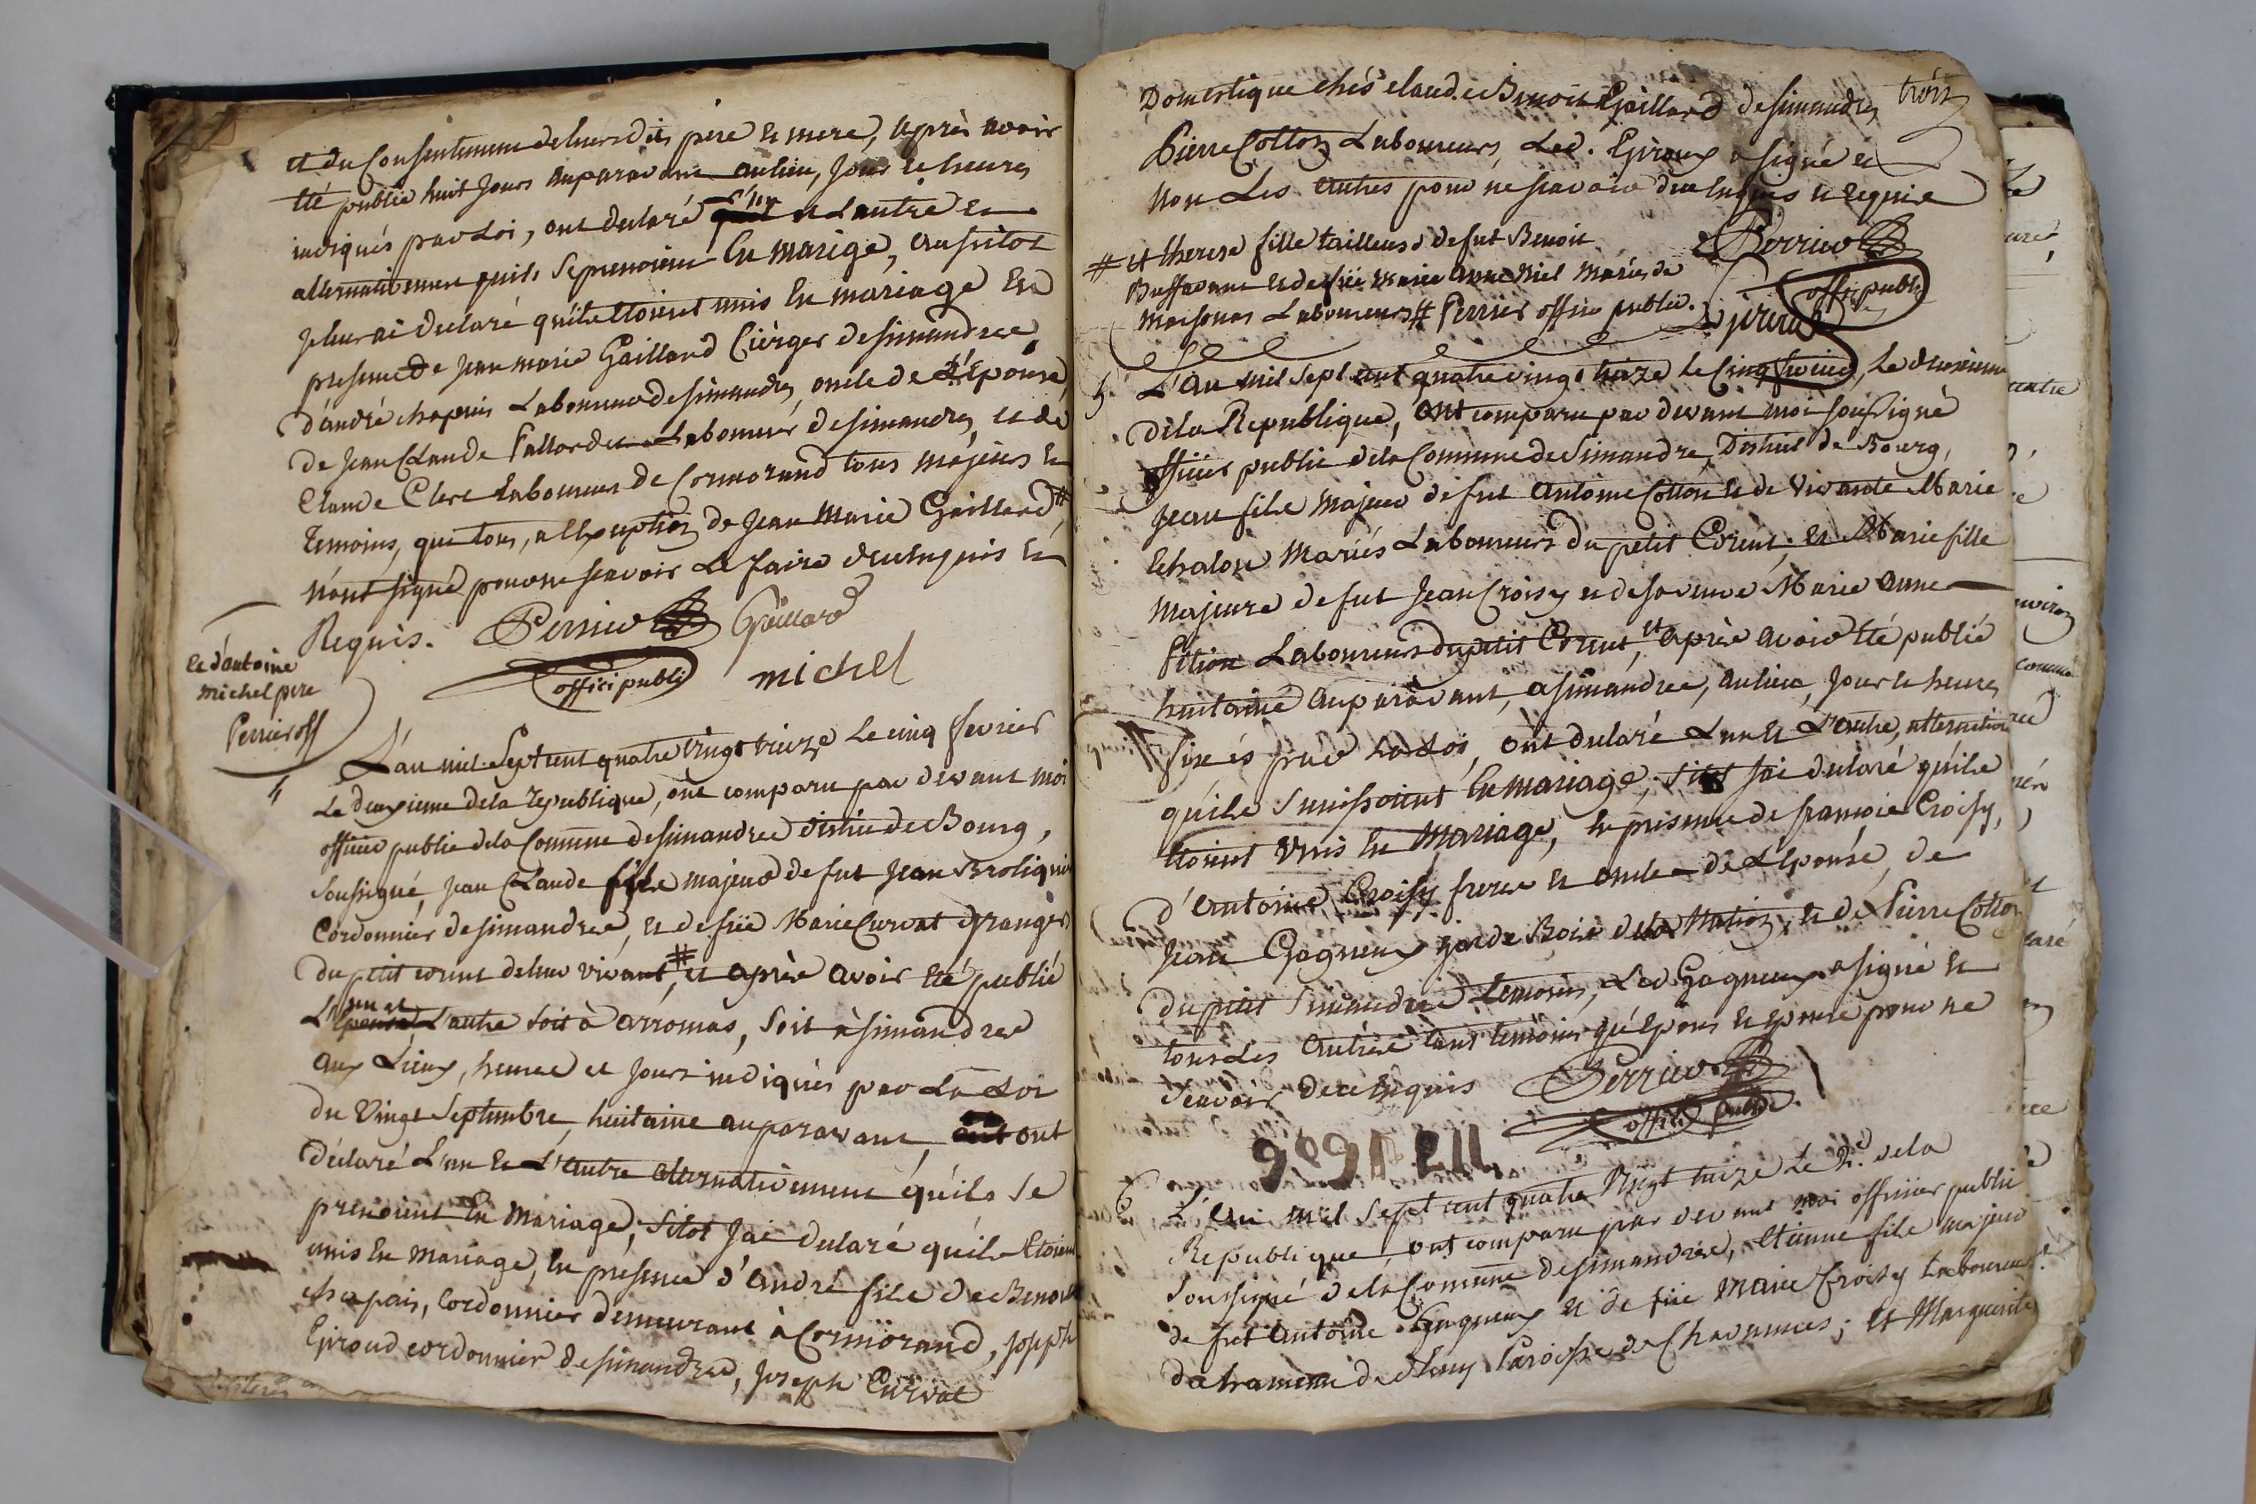 et du Consentement de leursdits pere et mere, après avoir
été publié huit Jours auparavant au lieu, Jours et heures
indiqués par Loi, ont declaré l'un et L'autre et
alternativement quils Se prenoient En mariage, aussitot
Je leur ai declaré qu'ils Etoient unis En mariage En
presence de Jean marie Gaillard Cierger de simandre,
d'andré chapuis Laboureur de simandre, oncle de L'Epouse,
de Jean Claude Laboureur de simandre, et de
Claude Clerc Laboureur de Cormorand tous majeurs et
Temoins, que tous, a l'Exception de Jean Marie Gaillard #,
N'ont signé pour ne scavoir Le faire de ce Enquis et
Requis. Perrier Gaillard
offici publi michel
et d'antoine
michel pere
Perrier off
4
L'an mil Sept cent quatre Vingt treize Le cinq fevrier
Le deuxieme de la republique, ont comparu par devant moi
officier public de la Commune de simandre district de Bourg,
Soussigné, Jean Claude fils majeur de fut Jean
Cordonnier de simandre, et de füe Marie Curvat granger
du petit corent de leur vivant, # et après avoir été publié
L'un et L'autre soit à arromas, Soit à simandre
aux Lieux, heures et Jours indiqués par La Loi
du Vingt Septembre, huitaine auparavant, ont
déclaré L'un et L'autre alternativement qu'ils Se
prenoient En Mariage, Sitot Jai declaré qu'ils Etoient
unis En mariage, En presence d'andré fils de Benoit
chapuis, Cordonnier demeurant à Cormorand, Joseph
Giroud cordonnier de simandre, Joseph Curvat
Domestique chés claude Benoit Gaillard de simandre, trois
Pierre Cotton Laboureurs, Led. Giroud a signé et
Non Les autres pour ne scavoir de ce Enquis et requis
# et therese fille tailleuse de fut Benoit Perrier
Buffavant et de füe marie anne Niel Mariés de
maisonas Laboureurs # Perrier officier public. offici publi
J giroud
5.
L'an mil sept cent quatre vingt treize Le Cinq fevrier, Le deuxieme
de la Republique, ont comparu par devant moi soussigné
officier public de la Commune de Simandre, District de Bourg,
Jean fils majeur de fut Antoine Cotton et de Vivante Marie
Echalon Mariés Laboureurs du petit Corent, et Marie fille
majeure de fut Jean Croisy et de sa veuve Marie Anne
Laboureurs du petit Corent, et après avoir été publié
huitaine auparavant, a simandre, au lieu, Jour et heures
fixés par la Loi, ont declaré L'un et L'autre, alternativ
qu'ils S'unissoient En mariage, sitot Jai declaré qu'ils
Etoient Unis En Mariage, En presence de françois Croisy,
d'Antoine Croisy frere et oncle de L'Epouse, de
Jean Gagneux garde Bois de la Nation, et de Pierre Cotton
du petit Simandre temoins, Led Gagneux a signé et
tous Les Autres tant temoins qu'Epoux et Epouse pour ne
scavoir de ce Enquis Perrier
offici public
6
L'an mil sept cent quatre Vingt treize Le 2.e de la
Republique, ont comparu par devant moi officier public
soussigné de la Commune de simandre, Etienne fils majeur
de fut Antoine Gagneux et de füe Marie Croisy Laboureurs
du hameau de Paroisse de Chavannes; et Marguerite